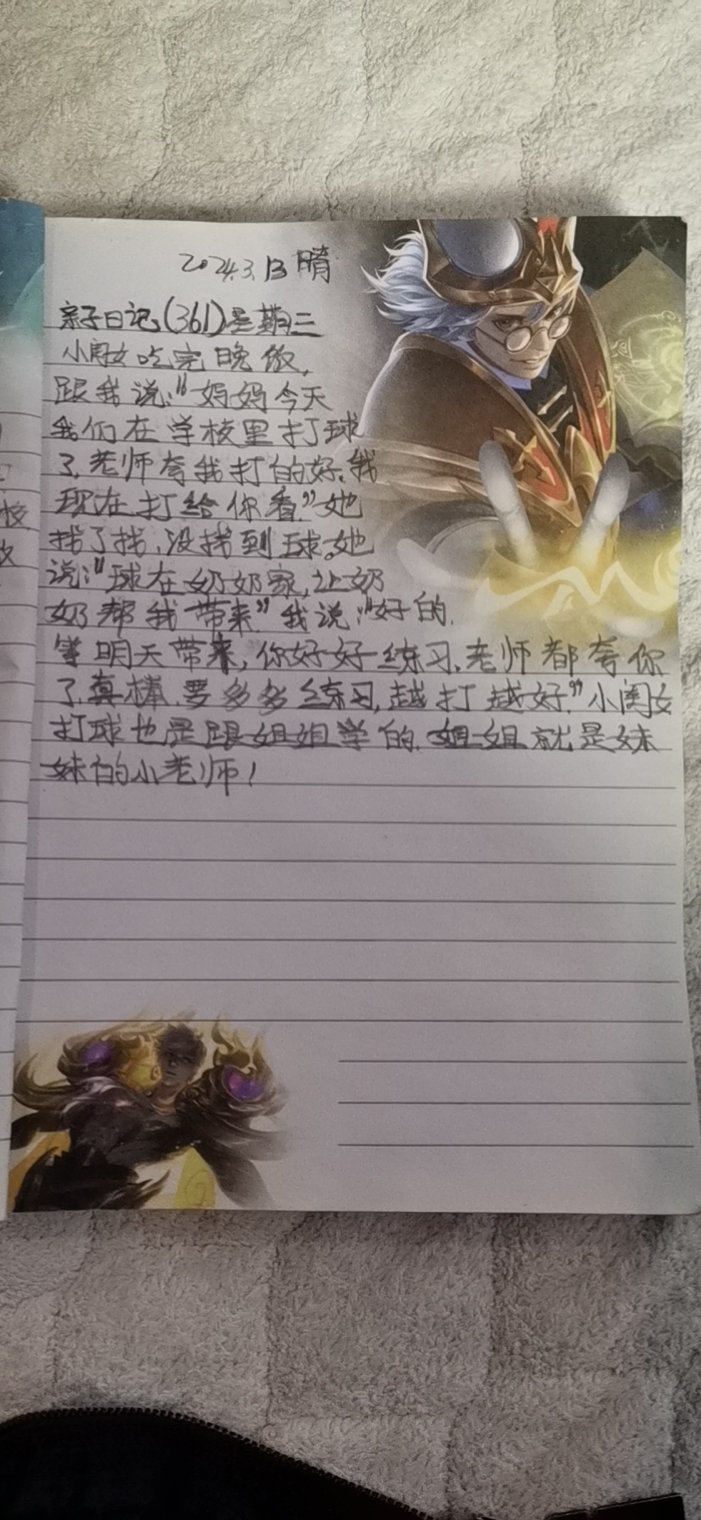 2024.3.13 晴
亲子日记(361)星期三
小闺女吃完晚饭,
跟我说:"妈妈今天
我们在学校里打球
了,老师夸我打的好,我
现在打给你看"她
找了找,没找到球,她
说:"球在奶奶家,让奶
奶帮我带来"我说:"好的.
等明天带来,你好好练习,老师都夸你
了,真棒,要多多练习,越打越好"小闺女
打球也是跟姐姐学的.姐姐就是妹
妹的小老师!
校